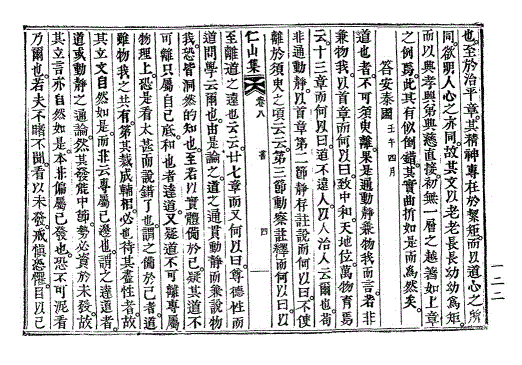 也至於治平章其精神專在於絜矩而以道心之所
同欲明人心之亦同故其文以老老長長幼幼爲矩
而以興孝興弟興慈直接初無一層之越善如上章
之例爲此其有似倒錯其實曲折如是而爲然矣
答安泰國 壬午四月
道也者不可須臾離果是通動靜乘物我而言者非
乘物我以首章而何以曰致中和天地位萬物育焉
云十三章而何以曰道不違人以人治人云爾也苟
非通動靜以首章第二節靜存註說而何以曰不使
離於須臾之頃云云第三節動察註釋而何以曰以
仁山集 卷八 書 四
至離道之遠也云云廿七章而又何以曰尊德性而
道問學云爾也由是論之道之通貫動靜而兼說物
我恐皆洞然的知也至若以實體備於己疑其道不
可離只屬自己底和也者達道又疑道不可離專屬
物理上恐是看太甚而說錯了也謂之備於己者道
雖物我之共有第其裁成輔相必也待其盡性者故
其文自然如是而非云專屬己邊也謂之達道者
道或動靜之通論然其發能中節務必資於未發故
其立言亦自然如是本非偏屬已發也恐不可泥看
乃爾也若夫不睹不聞看以未發戒愼恐懼目以已
一二二